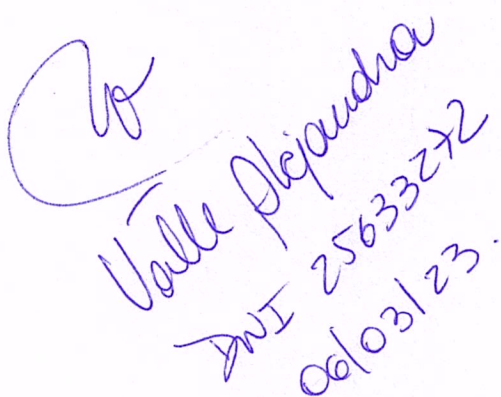 Valle Alejandra
DNI 25633272
06/03/23.